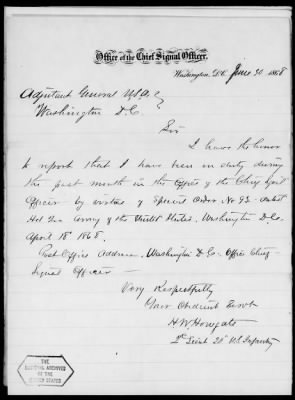 Office of the Chief Signal Officer.
Washington, D.C. June 30 1868
Adjutant General U.S.A.
Washington D.C.
Sir
I have the honor
to report that I have been on duty during
the past month in the Office of the Chief Signal
Officer by virtue of Special Order No 93 - dated
Hd Qrs Army of the United States, Washington D.C.
April 18" 1868.
Post Office Address, Washington D.C. Office Chief
Signal Officer
Very Respectfully
Your Obedient Servt
H W Howgate
2d Lieut 20" U.S. Infantry
THE
NATIONAL ARCHIVES
OF THE
UNITED STATES